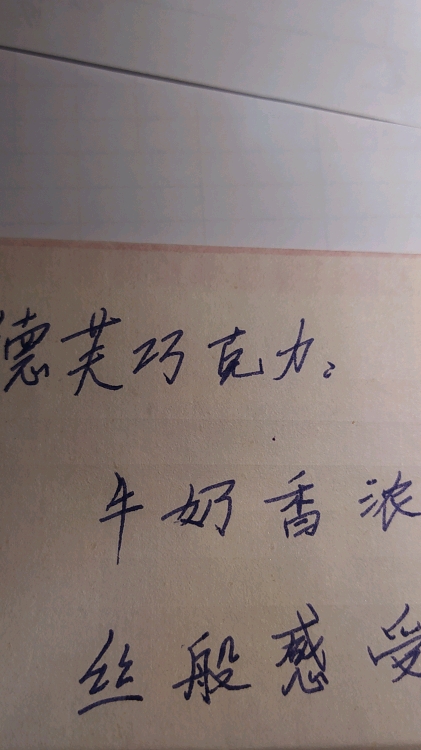 德芙巧克力。
牛奶香浓
丝般感受